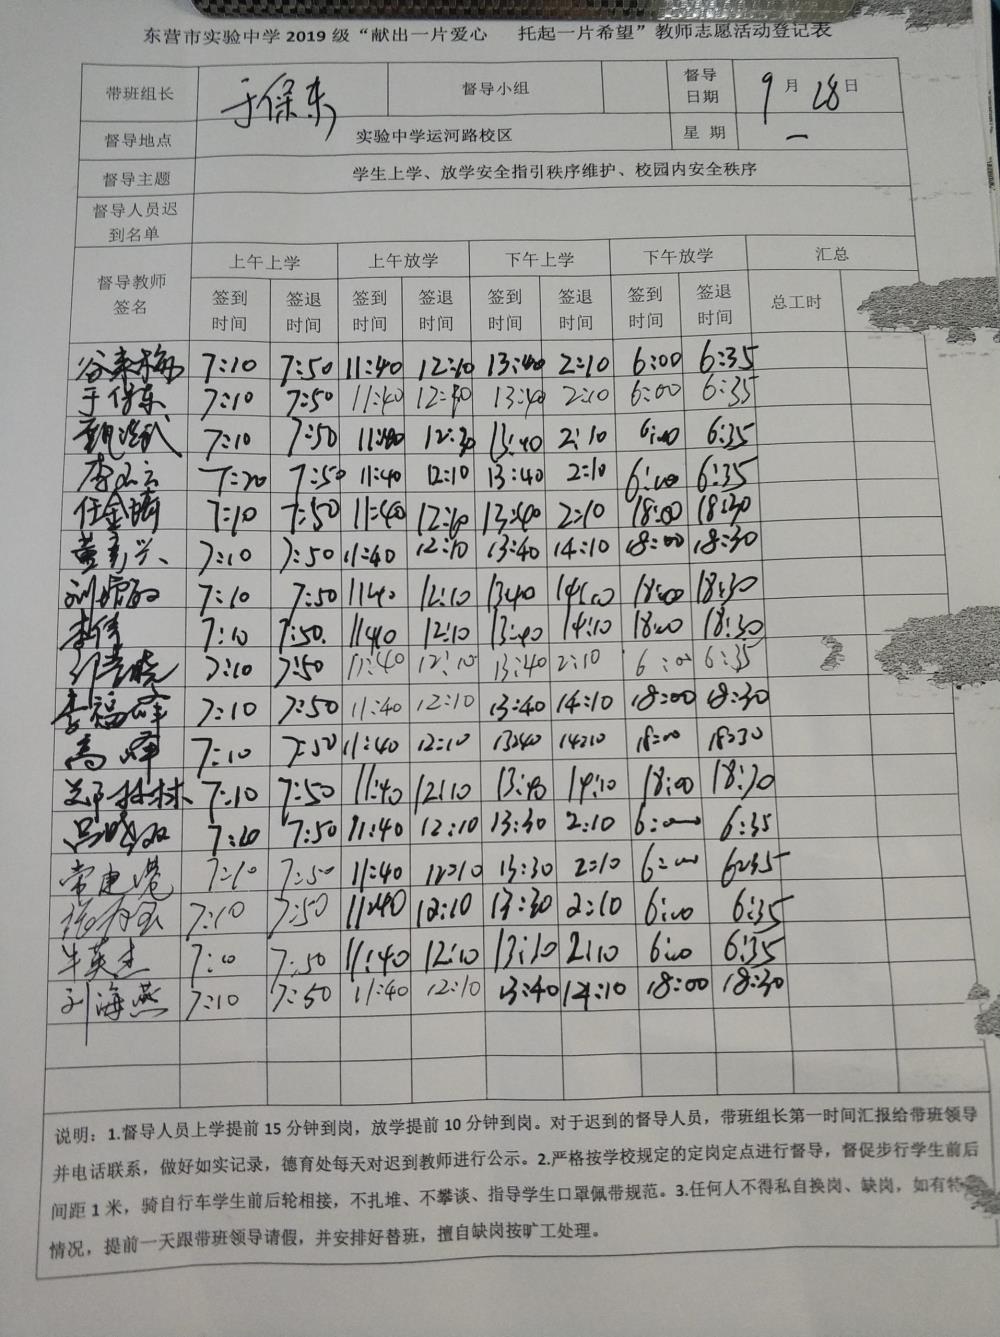 东营市实验中学2019级“献出一片爱心 托起一片希望”教师志愿活动登记表
带班组长 于保东 督导小组 督导日期 9月28日
督导地点 实验中学运河路校区 星期 一
督导主题 学生上学、放学安全指引秩序维护、校园内安全秩序
督导人员迟到名单
督导教师签名 上午上学 上午放学 下午上学 下午放学 汇总
签到时间 签退时间 签到时间 签退时间 签到时间 签退时间 签到时间 签退时间 总工时
谷来梅 7:10 7:50 11:40 12:10 13:40 2:10 6:00 6:35
于保东 7:10 7:50 11:40 12:30 13:40 2:10 6:00 6:35
7:10 7:50 11:40 12:30 13:40 2:10 6:00 6:35
7:20 7:50 11:40 12:10 13:40 2:10 6:00 6:35
任金 7:10 7:50 11:40 12:10 13:40 2:10 18:00 18:30
7:10 7:50 11:40 12:10 13:40 14:10 18:00 18:30
7:10 7:50 11:40 12:10 13:40 14:10 18:00 18:30
李伟 7:10 7:50 11:40 12:10 13:40 14:10 18:00 18:30
7:10 7:50 11:40 12:10 13:40 2:10 6:00 6:35
李福峰 7:10 7:50 11:40 12:10 13:40 14:10 18:00 18:30
高峰 7:10 7:50 11:40 12:10 13:40 14:10 18:00 18:30
郑林林 7:10 7:50 11:40 12:10 13:40 14:10 18:00 18:30
吕晓双 7:10 7:50 11:40 12:10 13:30 2:10 6:00 6:35
常建港 7:10 7:50 11:40 12:10 13:30 2:10 6:00 6:35
7:10 7:50 11:40 12:10 13:30 2:10 6:00 6:35
牛英杰 7:10 7:50 11:40 12:10 13:30 2:10 6:00 6:35
刘海燕 7:10 7:50 11:40 12:10 13:40 14:10 18:00 18:30
说明：1.督导人员上学提前15分钟到岗，放学提前10分钟到岗。对于迟到的督导人员，带班组长第一时间汇报给带班领导
并电话联系，做好如实记录，德育处每天对迟到教师进行公示。2.严格按学校规定的定岗定点进行督导，督促步行学生前后
间距1米，骑自行车学生前后轮相接，不扎堆、不攀谈、指导学生口罩佩带规范。3.任何人不得私自换岗、缺岗，如有特
情况，提前一天跟带班领导请假，并安排好替班，擅自缺岗按旷工处理。